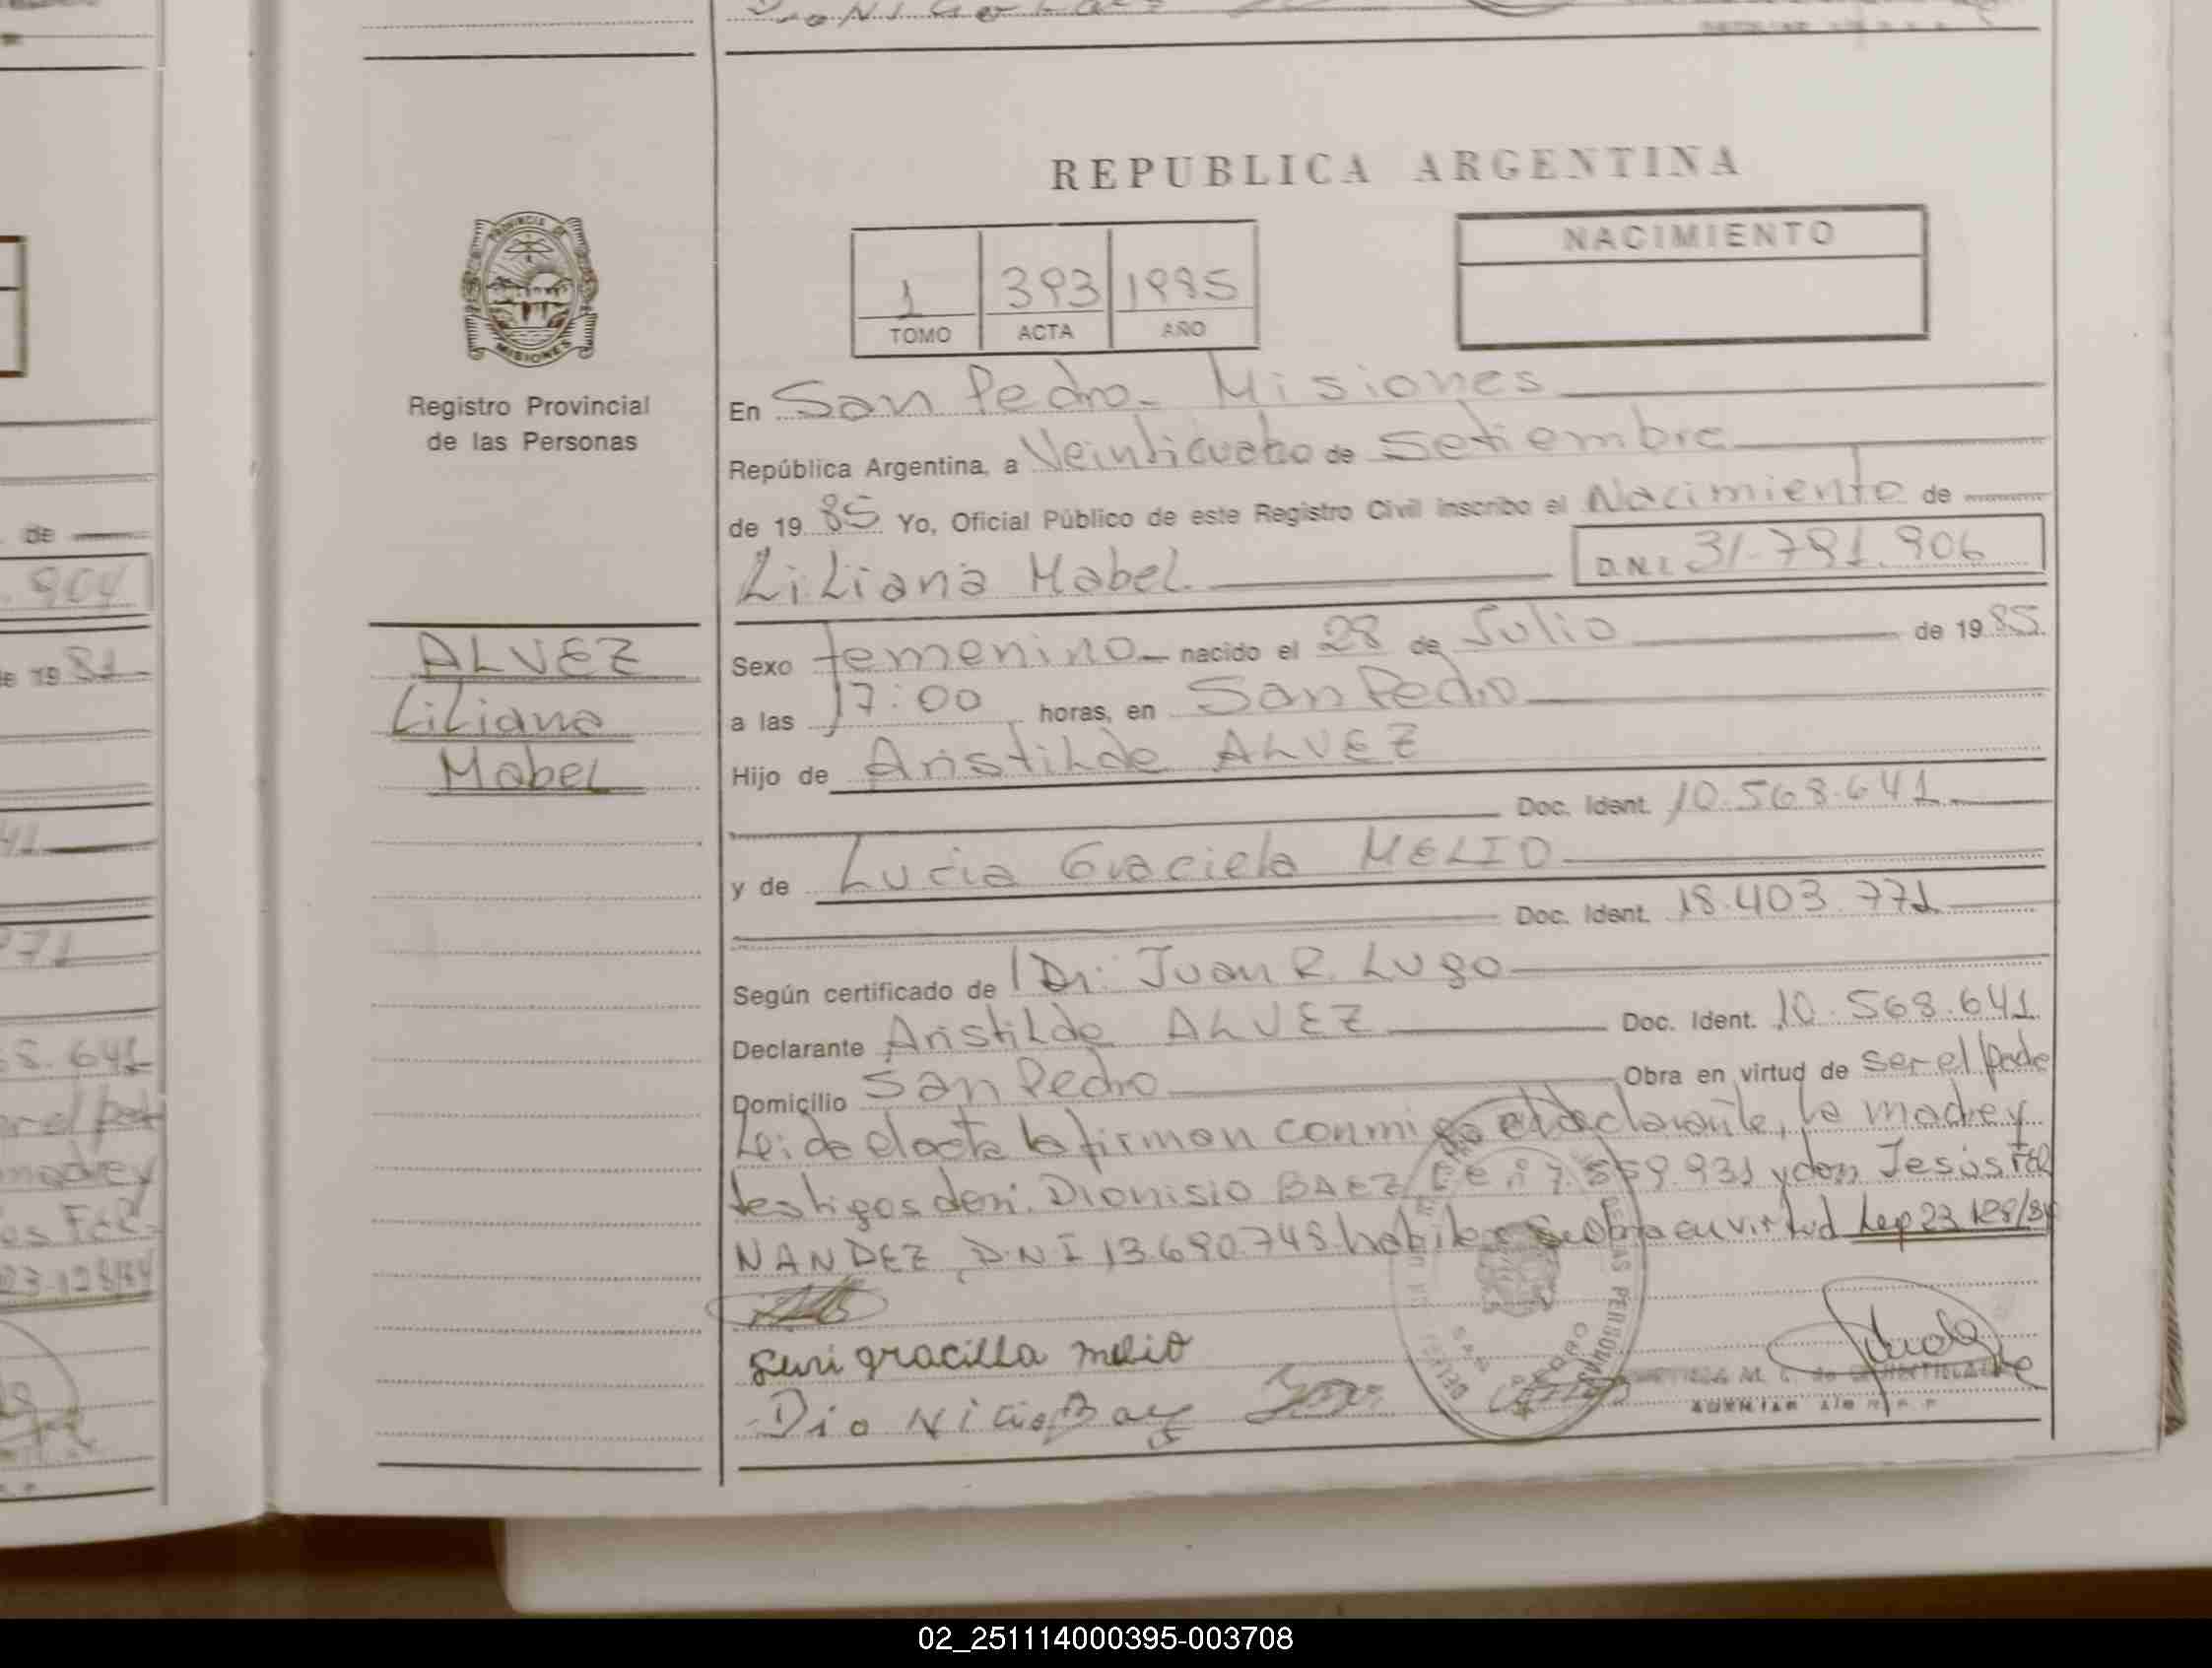 REPUBLICA ARGENTINA
PROVINCIA DE
MISIONES
Registro Provincial
de las Personas
1 393 1985
TOMO ACTA AÑO
NACIMIENTO
En San Pedro - Misiones
República Argentina, a Veinticuatro de Setiembre
de 19 85 Yo, Oficial Público de este Registro Civil inscribo el Nacimiento de
Liliana Mabel. D.N.I. 31.791.906
ALVEZ
Liliana
Mabel
Sexo femenino nacido el 28 de Julio de 19 85.
a las 17:00 horas, en San Pedro
Hijo de Aristilde ALVEZ
Doc. Ident. 10.568.641
y de Lucia Graciela MELIO
Doc. Ident. 18.403.771
Según certificado de Dr. Juan R. Lugo
Declarante Aristilde ALVEZ Doc. Ident. 10.568.641
Domicilio San Pedro Obra en virtud de ser el padre
Leida el acta la firman conmigo el declarante, la madre y
testigos don: Dionisio BAEZ 7.559.931 y don Jesús
NANDEZ, DNI 13.690.748 habiles Se obra en virtud Ley 23.128/84
gracilla melio
Dio Nicio Baez
AUXILIAR
de 904
de 19 81
41
71
68.641
madrey
23.128/84
02_251114000395-003708